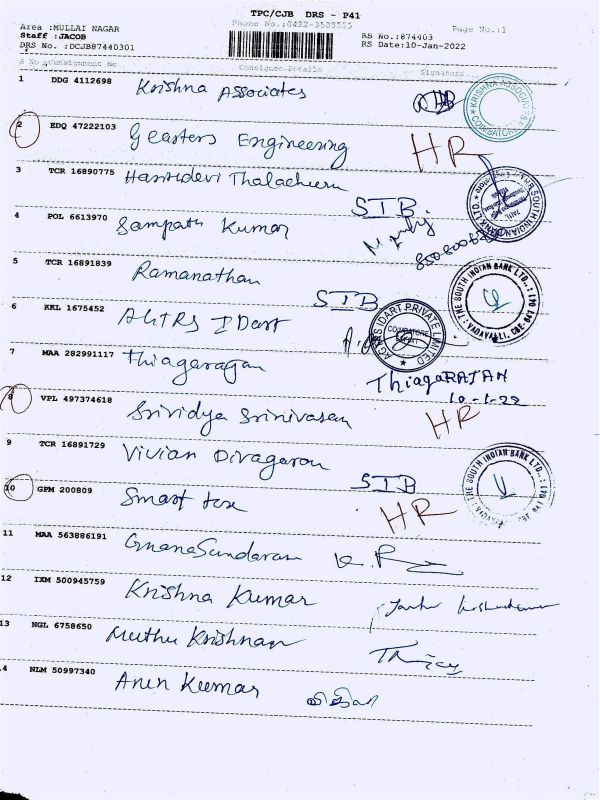 TPC/CJB DRS - P41
Area :MULLAI NAGAR
Phone No.:0422-3505515
Page No.:1
Staff :JACOB
RS No.:874403
DRS No. :DCJB87440301
RS Date:10-Jan-2022
Consignee Details
Signature
1 DDG 4112698 Krishna Associates
KRISHNA ASSOCIATES COIMBATORE
2 EDQ 47222103 Geasters Engineering HR
3 TCR 16890775 Harisudevi Thalacheeru SIB.
THE SOUTH INDIAN BANK LTD.
4 POL 6613970 Sampath Kumar
5 TCR 16891839 Ramanathan SIB
THE SOUTH INDIAN BANK LTD.,: VADAVALLI, CBE-641 041
6 KKL 1675452 AGTRS IDart
AGTRAS IDART PRIVATE LIMITED COIMBATORE
7 MAA 282991117 Thiagarajan ThiagaRAJAN
10-1-22
8 VPL 497374618 Srividya Srinivasan HR
9 TCR 16891729 Vivian Divagaran SIB
THE SOUTH INDIAN BANK LTD.,:
10 GPM 200809 Smart tax HR
11 MAA 563886191 GnanaSundaram
12 IXM 500945759 Krishna Kumar
13 NGL 6758650 Muthu Krishnan
14 NLM 50997340 Arun Kumar